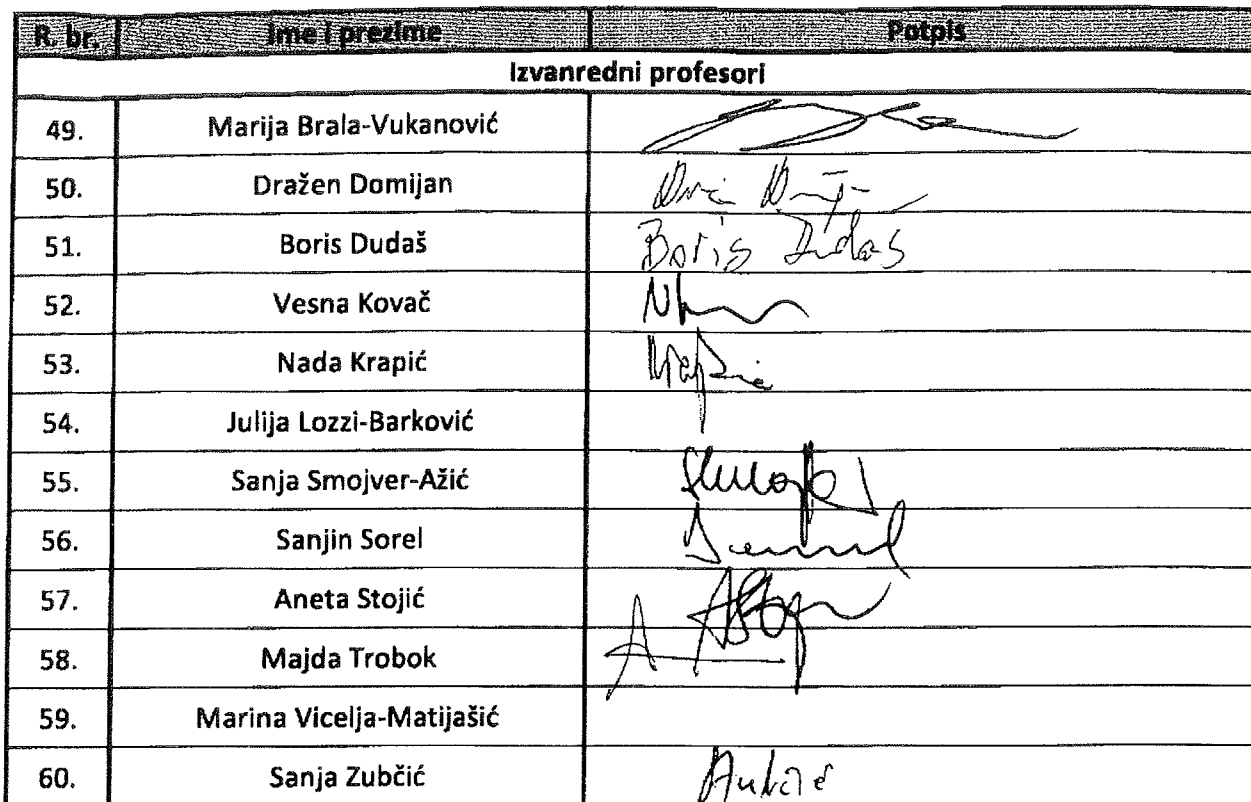 R. br. Ime i prezime Potpis
Izvanredni profesori
49. Marija Brala-Vukanović
50. Dražen Domijan
51. Boris Dudaš Boris Dudaš
52. Vesna Kovač
53. Nada Krapić
54. Julija Lozzi-Barković
55. Sanja Smojver-Ažić
56. Sanjin Sorel
57. Aneta Stojić
58. Majda Trobok
59. Marina Vicelja-Matijašić
60. Sanja Zubčić